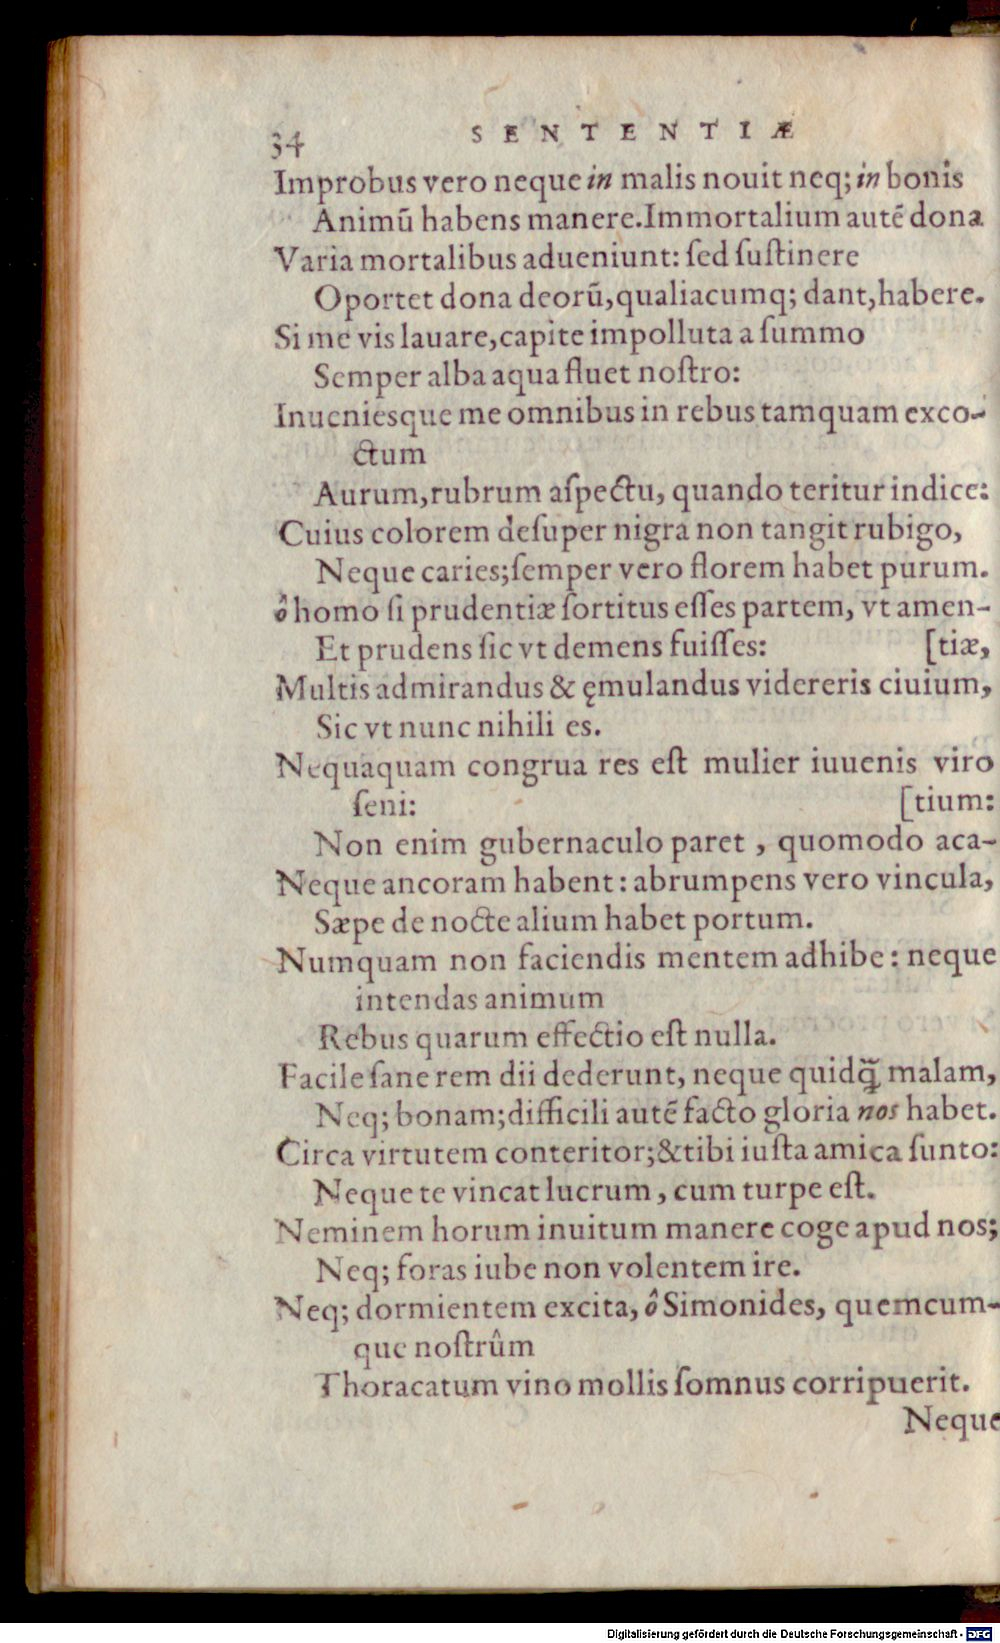 34 SENTENTIÆ
Improbus vero neque in malis nouit neq; in bonis
Animū habens manere. Immortalium autē dona
Varia mortalibus adueniunt: sed sustinere
Oportet dona deorū, qualiacumq; dant, habere.
Si me vis lauare, capite impolluta a summo
Semper alba aqua fluet nostro:
Inueniesque me omnibus in rebus tamquam exco-
ctum
Aurum, rubrum aspectu, quando teritur indice:
Cuius colorem desuper nigra non tangit rubigo,
Neque caries; semper vero florem habet purum.
ô homo si prudentiæ sortitus esses partem, vt amen-
Et prudens sic vt demens fuisses: [tiæ,
Multis admirandus & ęmulandus videreris ciuium,
Sic vt nunc nihili es.
Nequaquam congrua res est mulier iuuenis viro
seni: [tium:
Non enim gubernaculo paret, quomodo aca-
Neque ancoram habent: abrumpens vero vincula,
Sæpe de nocte alium habet portum.
Numquam non faciendis mentem adhibe: neque
intendas animum
Rebus quarum effectio est nulla.
Facile sane rem dii dederunt, neque quidq̃ malam,
Neq; bonam; difficili autē facto gloria nos habet.
Circa virtutem conteritor; & tibi iusta amica sunto:
Neque te vincat lucrum, cum turpe est.
Neminem horum inuitum manere coge apud nos;
Neq; foras iube non volentem ire.
Neq; dormientem excita, ô Simonides, quemcum-
que nostrûm
Thoracatum vino mollis somnus corripuerit.
Neque
Digitalisierung gefördert durch die Deutsche Forschungsgemeinschaft - DFG